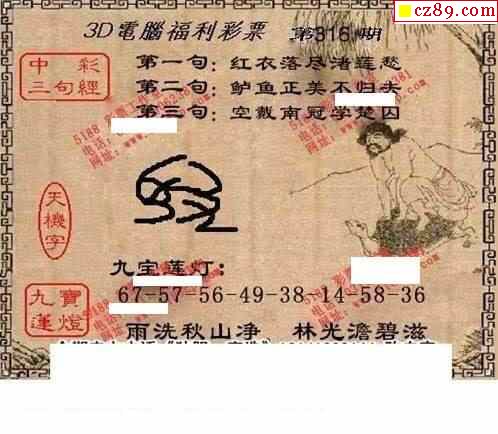 cz89.com
3D電腦福利彩票 第316期
中彩
三句經
第一句：红衣落尽渚莲愁
第二句：鲈鱼正美不归去
第三句：空戴南冠学楚囚
天機字
九宝莲灯：
九寶
蓮燈
67-57-56-49-38-14-58-36
雨洗秋山净 林光澹碧滋